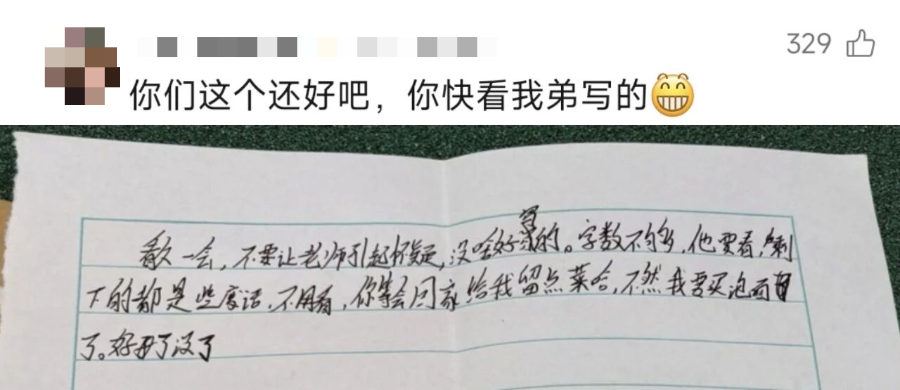 329
你们这个还好吧，你快看我弟写的😁
一会，不要让老师引起怀疑，没啥好写的。字数不够，他要看，剩
下的都是些废话，不用看，你等会回家给我留点菜哈，不然我要买泡面
了。好了没了